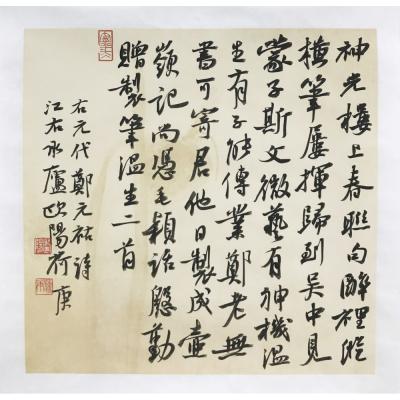 神光樓上春聯句醉裡縱
橫筆屢揮歸到吳中見
蒙子斯文微藝有神機溫
生有子能傳業鄭老無
書可寄君他日製成壺
嶺記尚憑毛穎話慇勤
贈製筆溫生二首
右元代鄭元祐詩
江右水廬歐陽荷庚